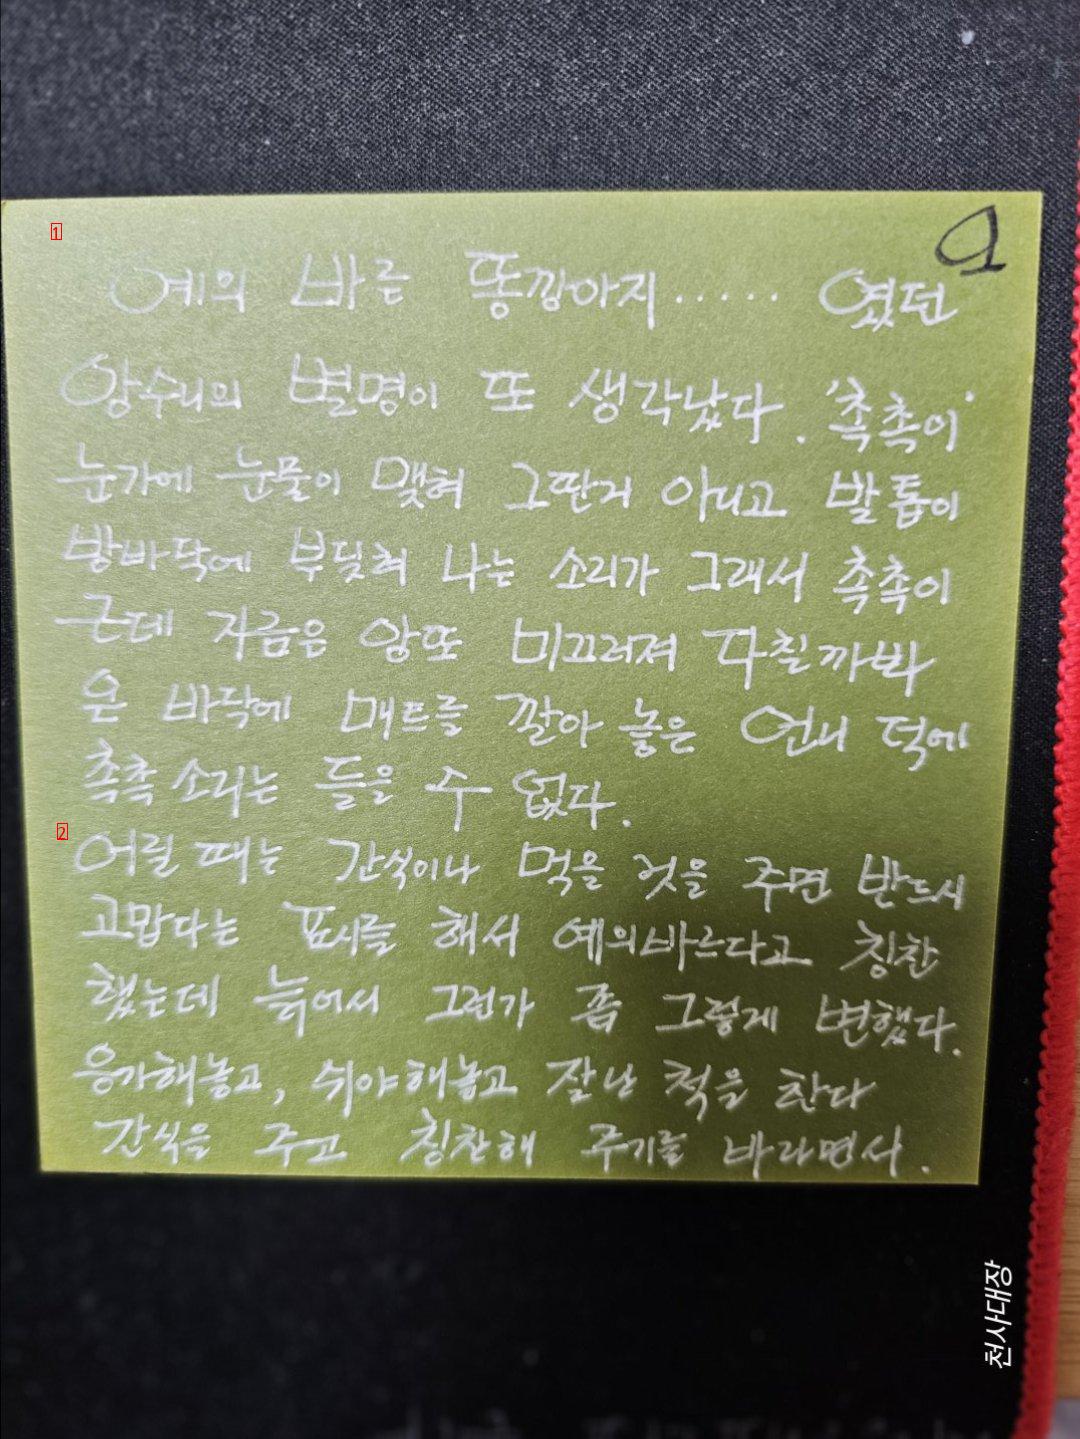 1
예의 바른 똥깡아지..... 였던
앙수니의 별명이 또 생각났다. '촉촉이'
눈가에 눈물이 맺혀 그딴거 아니고 발톱이
방바닥에 부딪혀 나는 소리가 그래서 촉촉이
근데 지금은 앙또 미끄러져 다칠까봐
온 바닥에 매트를 깔아 놓은 언니 덕에
촉촉 소리는 들을 수 없다.
2
어릴 때는 간식이나 먹을 것을 주면 반드시
고맙다는 표시를 해서 예의바르다고 칭찬
했는데 늙어서 그런가 좀 그렇게 변했다.
응가해놓고, 쉬야해놓고 잘난 척을 한다
간식을 주고 칭찬해 주기를 바라면서.
천사대장